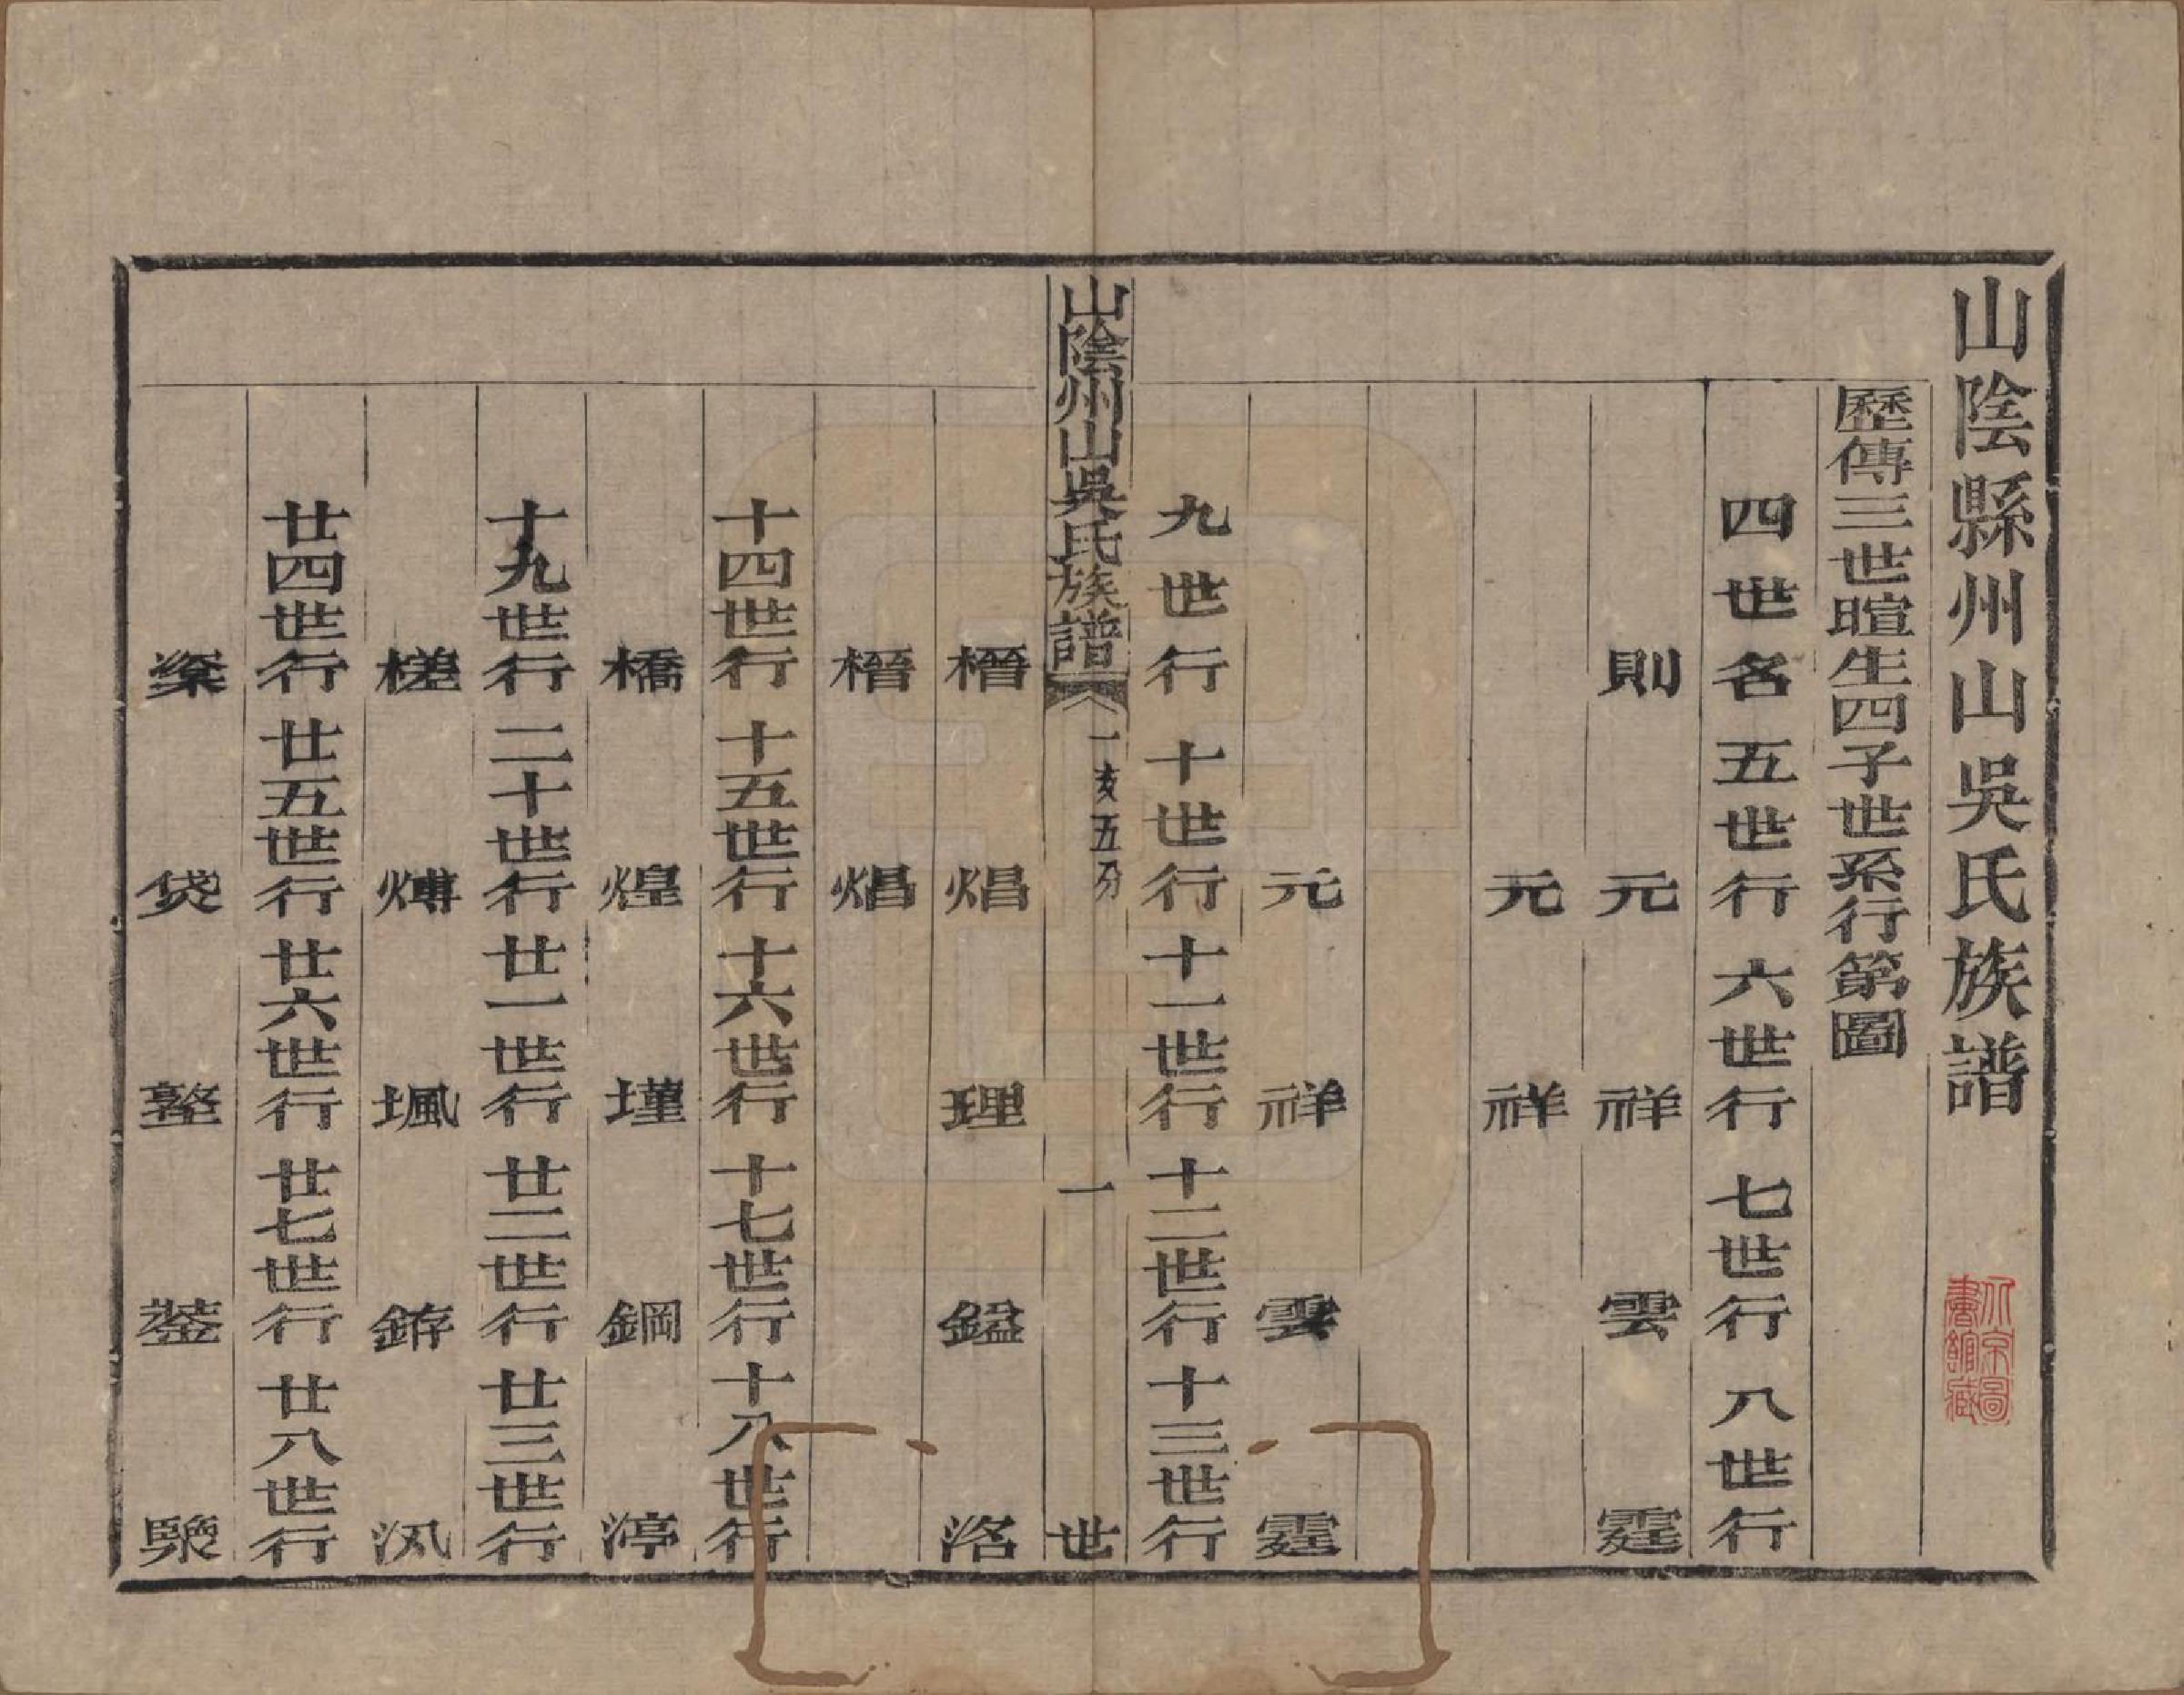 山陰縣州山吳氏族譜
歷傳三世暄生四子世系行第圖
四世名 五世行 六世行 七世行 八世行
則 元 祥 雲 霆
元 祥
元 祥 雲 霆
九世行 十世行 十一世行 十二世行 十三世行
山陰州山吳氏族譜 一 亥五分 一 世
榗 焻 理 鎰 洛
榗 焻
十四世行 十五世行 十六世行 十七世行 十八世行
橋 煌 墐 鋼 渟
十九世行 二十世行 廿一世行 廿二世行 廿三世行
槎 煿 堸 銌 汎
廿四世行 廿五世行 廿六世行 廿七世行 廿八世行